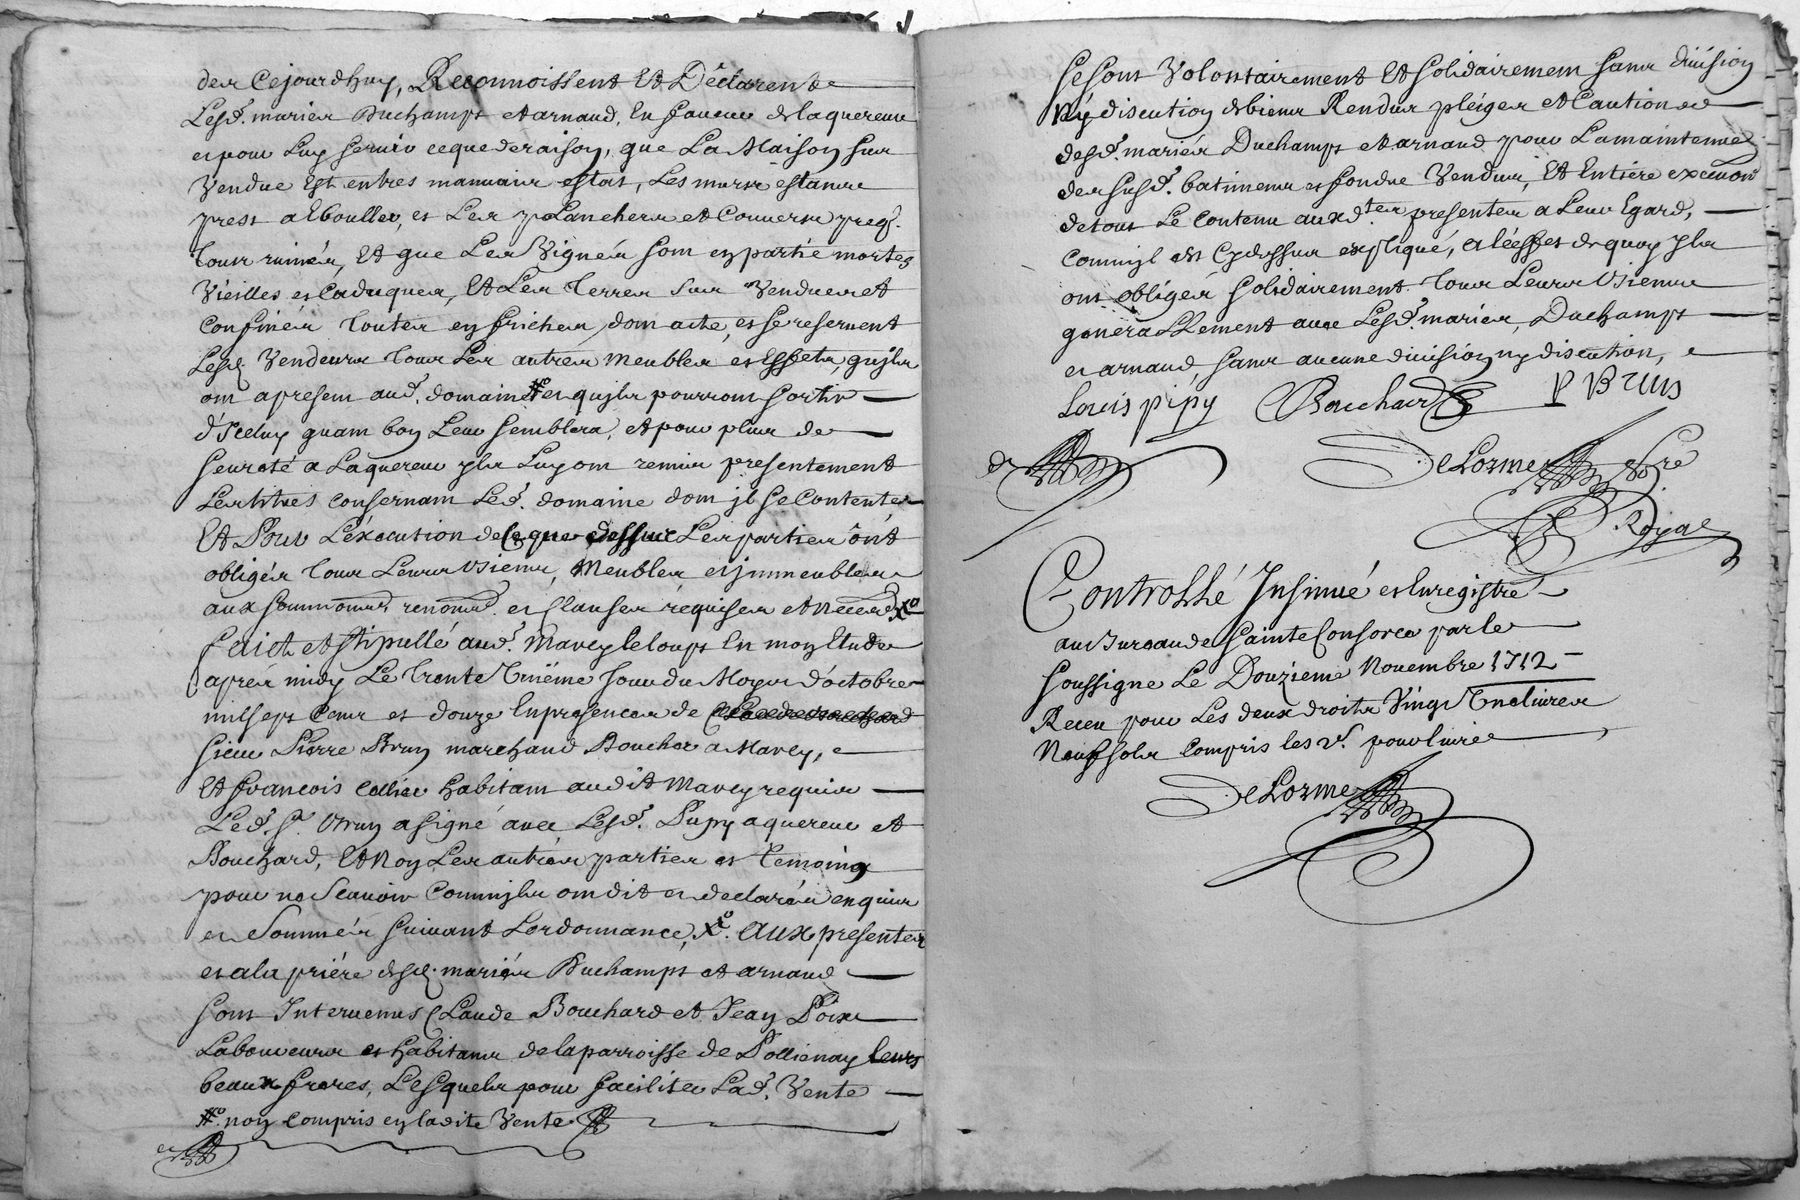 des Cejourdhuy, Reconnoissent Et Declarent
Lesd. mariés Duchamps et arnaud, En faueur de laquereur
et pour Luy seruir ce que de raison, que La Maison sus
Vendue Est en tres mauuais estat, Les murs estans
prest a Eboulles, et Les planchers et Couuerts presq.
tous ruinés, Et que Les Vignes sont en partie mortes
Vieilles et Caduques, Et Les terres sus Vendues et
Confinées toutes en friches, dont acte, et se reseruent
Lesd. Vendeurs tous Les autres Meubles et Effets, quils
ont apresent aud. domaine # et quils pourront sortir
d'Iceluy quant bon Leur semblera, et pour plus de
seureté a Laquereur ils Luy ont remis presentement
Les titres consernant Led. domaine dont il se Contente
Et Pour L'éxecution de Ce que dessus Les parties ônt
obligés tous Leurs biens, Meubles et immeubles
aux soummons. renoms. et Clauses réquises et Necess. Xo
faict et stipullé aud. Marcy le loup En mon Etude
aprés midy Le trente Unième Jour du Moys d'octobre
mil sept Cens et douze En presences de Claude Bouchard
sieur Pierre Brun marchand Boucher a Marcy,
Et francois Collier habitant audit Marcy requis
Led. Sr. Brun a signé auec Lesd. Pupy aquereur et
Bouchard, Et Non Les autres parties et temoing
pour ne Scauoir Comm'ils ont dit et declarés enquis
et Sommés suiuant Lordonnance, Xo. aux presentes
et a la priére desd. mariés Duchamps et arnaud
sont Interuenus Claude Bouchard et Jean Poix
Laboureurs et habitans de la parroisse de Pollienay leurs
beaux freres, Lesquels pour faciliter Lad. Vente
#o. non compris en ladite Vente
se sont Volontairement Et solidairement sans diuision
ny discution de biens Rendus pleiges et Cautions
desd. mariés Duchamps et arnaud pour La maintenue
des susd. batimens et fonds Vendus, Et Entiere execuon
de tout Le Contenu auxdtes presentes a Leur Egard,
Comm'il est Cy dessus expliqué, a l'éffet de quoy ils
ont obligés solidairement tous Leurs biens
generaLLement auec Lesd. mariés, Duchamps
et arnaud sans aucune diuision ny discution,
Louis pipy Bouchard P Brun
DeLorme nore
Royal
Controllé Insinué et Enregistré
au Bureau de Sainte Consorce par le
soussigné Le Douzieme Nouembre 1712
Receu pour Les deux droits Vingt Une liures
Neuf sols Compris les 2s. pour liure
DeLorme